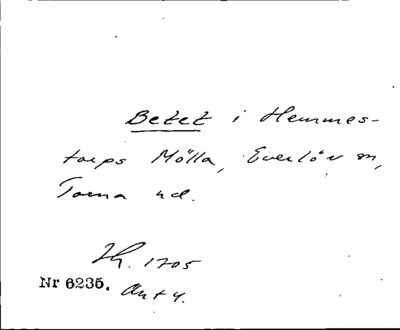 Betet i Hemmes-
torps Mölla, Everlöv sn,
Torna hd.
Jh. 1705
Nr 6235. Ant 4.